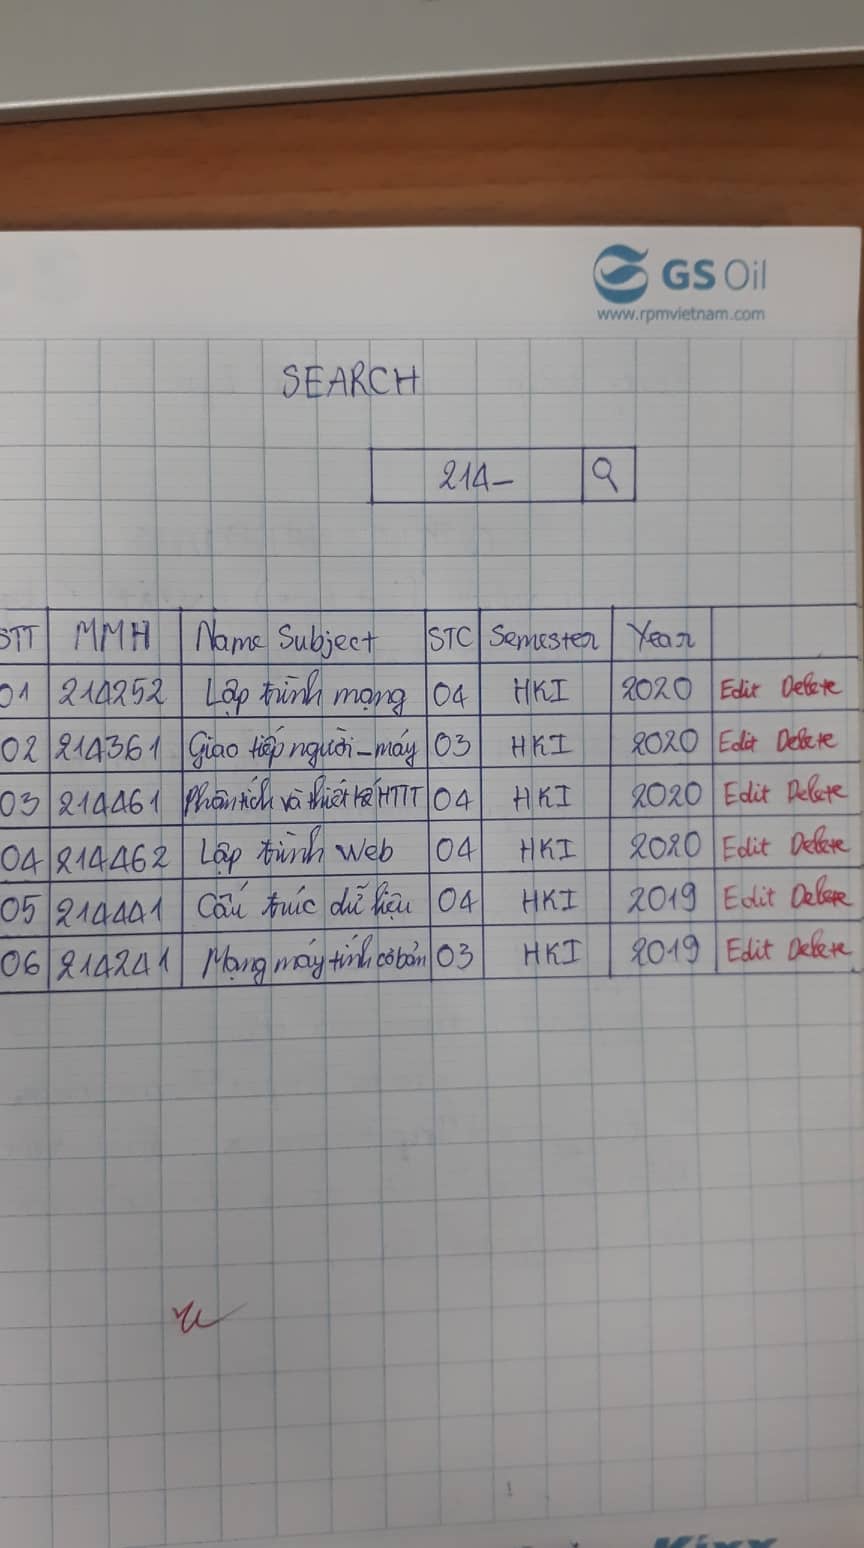 GS Oil
www.rpmvietnam.com
SEARCH
214-
STT MMH Name Subject STC Semester Year
01 214252 Lập trình mạng 04 HKI 2020 Edit Delete
02 214361 Giao tiếp người-máy 03 HKI 2020 Edit Delete
03 214461 Phân tích và thiết kế HTTT 04 HKI 2020 Edit Delete
04 214462 Lập trình Web 04 HKI 2020 Edit Delete
05 214441 Cấu trúc dữ liệu 04 HKI 2019 Edit Delete
06 214241 Mạng máy tính cơ bản 03 HKI 2019 Edit Delete